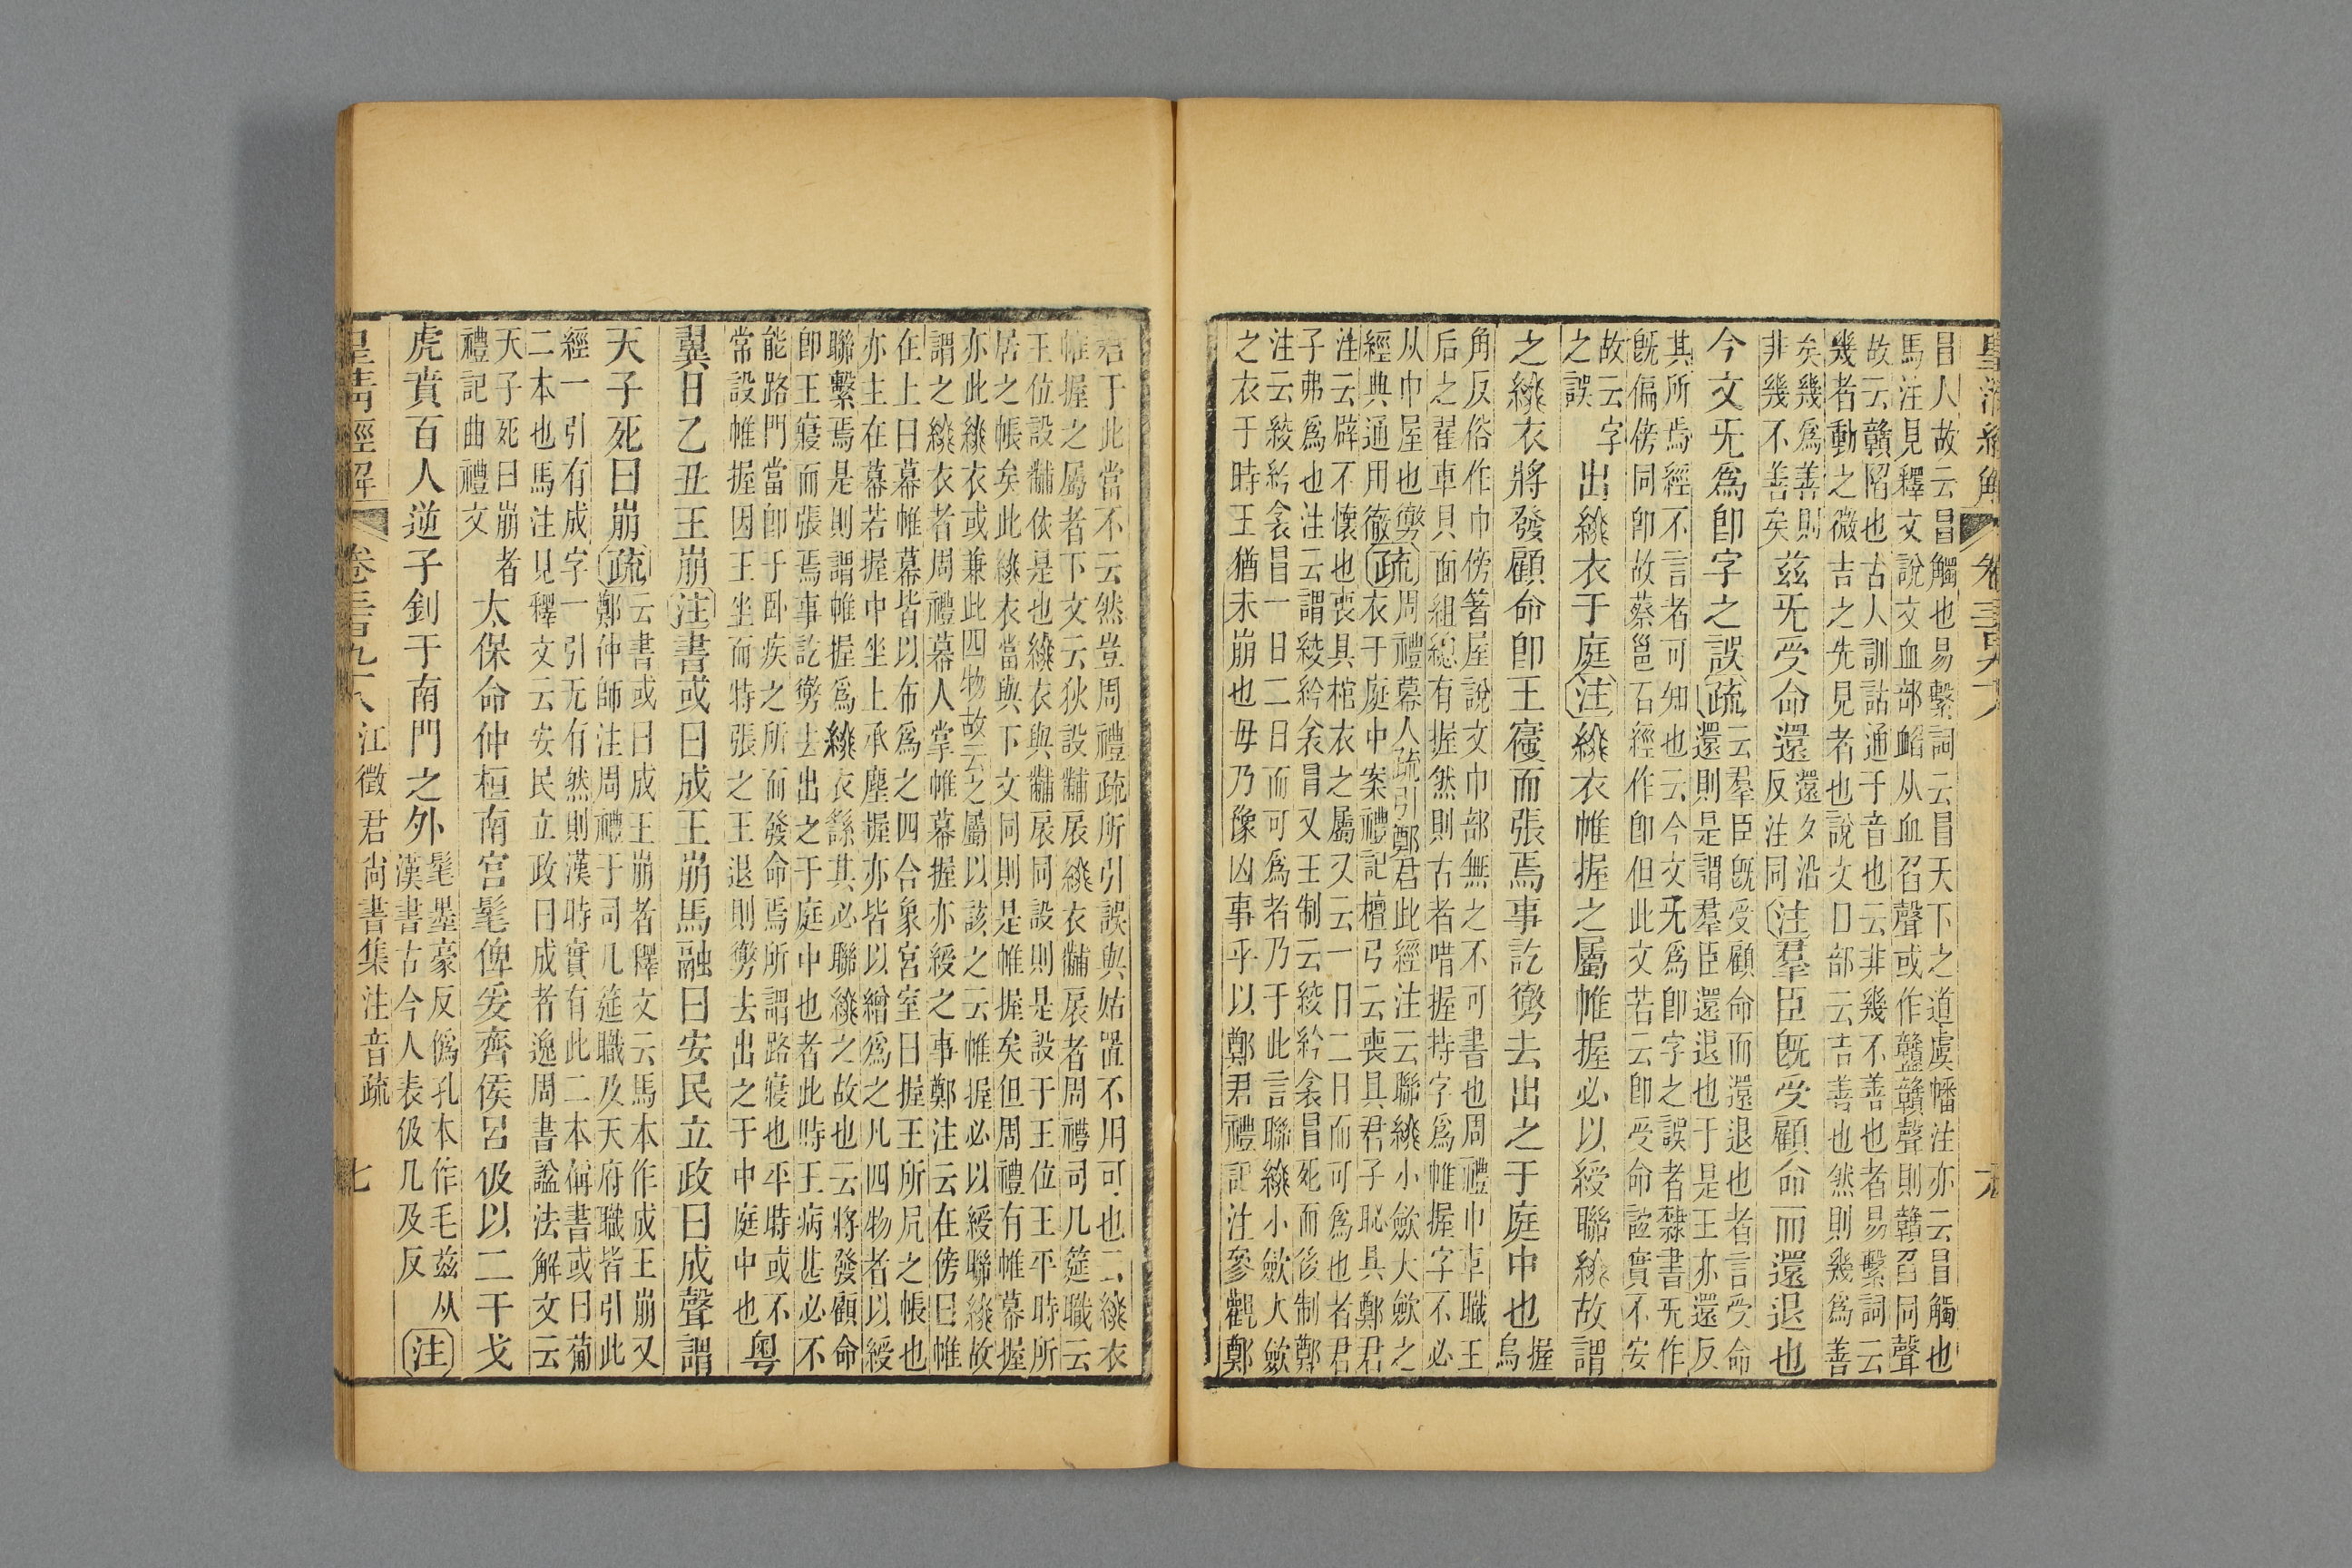 皇清經解
昌人故云昌觸也易繫詞云昌天下之道虞幡注亦云昌觸也
馬注見釋文說文血部䘓从血召聲或作𧗕贛聲則贛召同聲
故云贛陷也古人訓詁通于音也云非幾不善也者易繫詞云
幾者動之微吉之先見者也說文口部云吉善也然則幾爲善
矣幾爲善則
非幾不善矣
茲旡受命還
還夕沿
反注同
注羣臣旣受顧命而還退也
今文旡爲卽字之誤疏
云羣臣旣受顧命而還退也者言受命
還則是謂羣臣還退也于是王亦還反
其所焉經不言者可知也云今文旡爲卽字之誤者隸書旡作
旣偏傍同卽故蔡邕石經作卽但此文若云卽受命詎實不安
故云字
之誤
出綴衣于庭注綴衣帷握之屬帷握必以綬聯綴故謂
之綴衣將發顧命卽王寢而張焉事訖𢹬去出之于庭中也
握
烏
角反俗作巾傍箸屋說文巾部無之不可書也周禮巾車職王
后之翟車貝面組總有握然則古者唶握持字爲帷握字不必
从巾屋也𢹬疏周禮幕人疏引鄭君此經注云聯綴小斂大斂之
經典通用徹衣于庭中案禮記檀弓云喪具君子恥具鄭君
注云辟不懷也喪具棺衣之屬又云一日二日而可爲也者君
子弗爲也注云謂綾紟衾冒又王制云綾紟衾冒死而後制鄭
注云綾紟衾冒一日二日而可爲者乃于此言聯綴小斂大斂
之衣于時王猶未崩也毋乃豫凶事乎以鄭君禮記注參觀鄭
君于此當不云然豈周禮疏所引誤與姑置不用可也云綴衣
帷握之屬者下文云狄設黼扆綴衣黼扆者周禮司几筵職云
王位設黼依是也綴衣與黼扆同設則是設于王位王平時所
居之帳矣此綴衣當與下文同則是帷握矣但周禮有帷幕握
亦此綴衣或兼此四物故云之屬以該之云帷握必以綬聯綴故
謂之綴衣者周禮幕人掌帷幕握亦綬之事鄭注云在傍曰帷
在上曰幕帷幕皆以布爲之四合象宮室曰握王所凥之帳也
亦主在幕若握中坐上承塵握亦皆以繒爲之凡四物者以綬
聯繫焉是則謂帷握爲綴衣繇其必聯綴之故也云將發顧命
卽王寢而張焉事訖𢹬去出之于庭中也者此時王病甚必不
能路門當卽于臥疾之所而發命焉所謂路寢也平時或不
常設帷握因王坐而特張之王退則𢹬去出之于中庭中也
粤
翼日乙丑王崩注書或曰成王崩馬融曰安民立政曰成聲謂
天子死曰崩疏
云書或曰成王崩者釋文云馬本作成王崩又
鄭仲師注周禮于司几筵職及天府職皆引此
經一引有成字一引无有然則漢時實有此二本偁書或曰葡
二本也馬注見釋文云安民立政曰成者逸周書謚法解文云
天子死曰崩者
禮記曲禮文
太保命仲桓南宮髦俾爰齊侯呂伋以二干戈
虎賁百人逆子釗于南門之外
髦墨豪反僞孔本作毛茲从
漢書古今人表伋几及反
注
皇清經解
卷三百九十八
江徵君尙書集注音疏
七